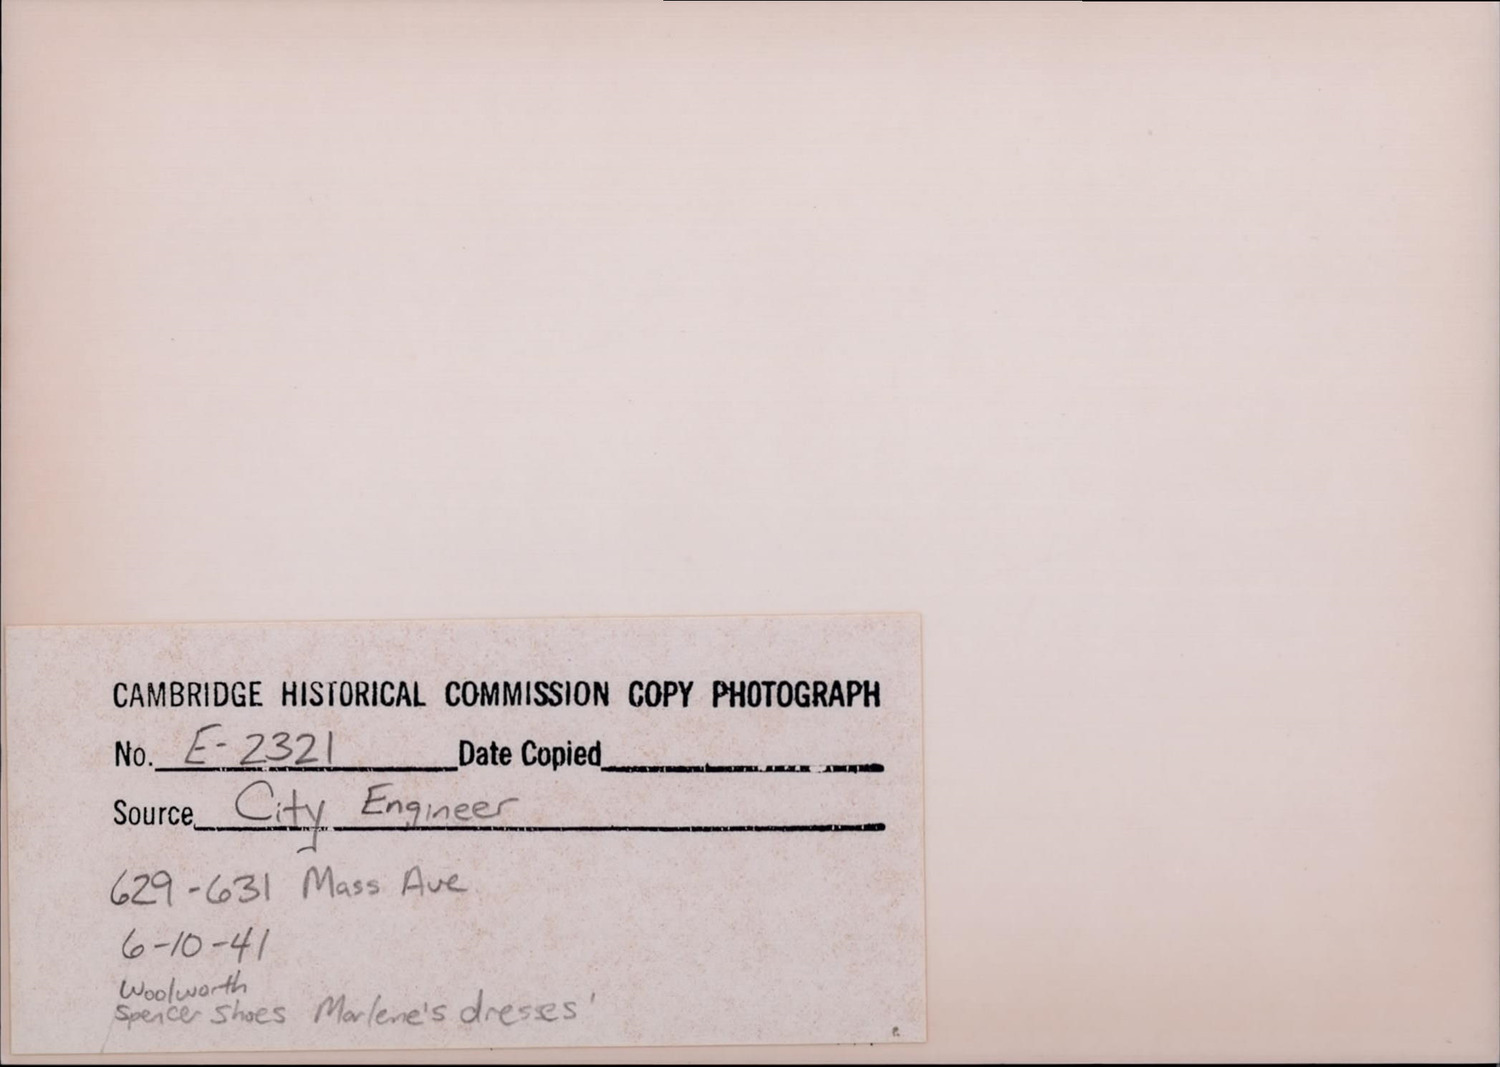 CAMBRIDGE HISTORICAL COMMISSION COPY PHOTOGRAPH
No. E-2321 Date Copied
Source City Engineer
629-631 Mass Ave
6-10-41
Woolworth
Spencer Shoes Marlene's dresses'